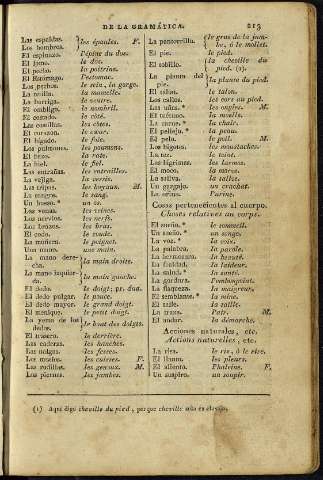 DE LA GRAMÁTICA. 213
Las espaldas. les épaules. F.
Los hombros.
El espinazo. l'épine du dos.
El lomo. le dos.
El pecho. la poitrine.
El estómago. l'estomac.
Los pechos. le sein, la gorge.
La tetilla. la mamelle.
La barriga. le ventre.
El ombligo. le nombril.
El costado. le côté.
Las costillas. les côtes.
El corazon. le cœur.
El hígado. le foie.
Los pulmones. les poumons.
El bazo. la rate.
La hiel. le fiel.
Las entrañas. les entrailles.
La vejiga. la vessie.
Las tripas. les boyaux. M.
La sangre. le sang.
Un hueso. * un os.
Las venas. les veines.
Los nervios. les nerfs.
Los brazos. les bras.
El codo. le coude.
La muñeca. le poignet.
Una mano. une main.
La mano derecha. la main droite.
La mano izquierda. la main gauche.
El dedo. le doigt; pr. dua.
El dedo pulgar. le pouce.
El dedo mayor. le grand doigt.
El meñique. le petit doigt.
La yema de los dedos. le bout des doigts.
El trasero. le derrière.
Las caderas. les hanches.
Las nalgas. les fesses.
Los muslos. les cuisses. F.
Las rodillas. les genoux. M.
Las piernas. les jambes.
La pantorrilla. le gras de la jambe, ó le mollet.
El pie. le pied.
El tobillo. la cheville du pied. (1).
La planta del pie. la plante du pied.
El talon. le talon.
Los callos. les cors au pied.
Las uñas. * les ongles. M.
El tuétano. la moelle.
La carne. * la chair.
El pellejo. * la peau.
El pelo. le poil. M.
Los bigotes. les moustaches.
La tez. le teint.
Las lágrimas. les larmes.
El moco. la morve.
La saliva. la salive.
Un gargajo. un crachat.
La orina. l'urine.
Cosas pertenecientes al cuerpo.
Choses relatives au corps.
El sueño. * le sommeil.
El sueño. * un songe.
La voz. * la voix.
La palabra. la parole.
La hermosura. la beauté.
La fealdad. la laideur.
La salud. * la santé.
La gordura. l'embonpoint.
La flaqueza. la maigreur.
El semblante. * la mine.
El talle. la taille.
La traza. l'air. M.
El andar. la démarche.
Acciones naturales, etc.
Actions naturelles, etc.
La risa. le ris, ó le rire.
El llanto. les pleurs.
El aliento. l'haleine. F.
Un suspiro. un soupir.
(1) Aquí digo cheville du pied, porque cheville solo es clavija.